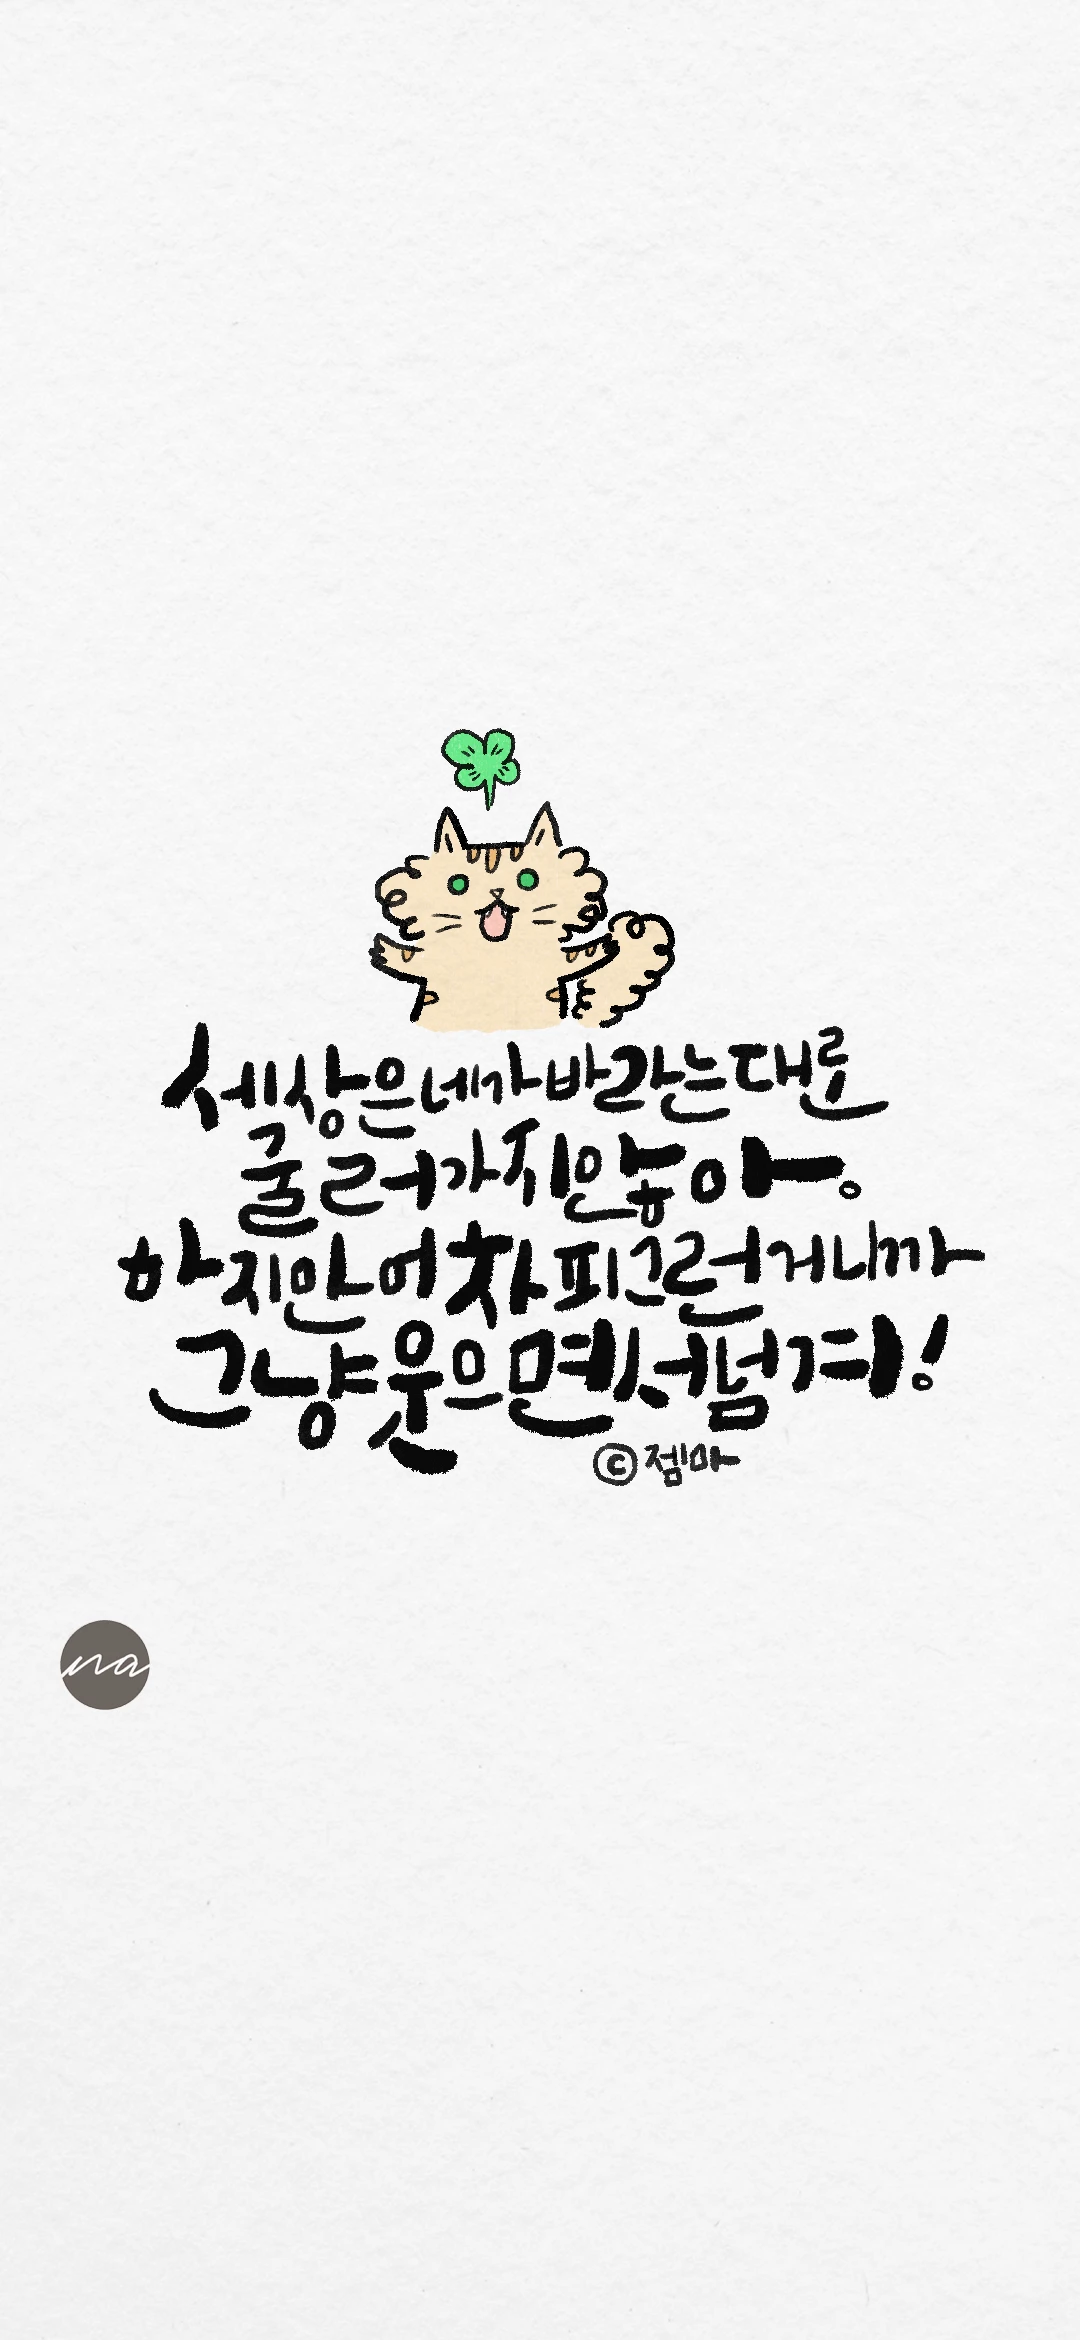 세상은 네가 바라는대로
굴러가지 않아.
하지만 어차피 그런거니까
그냥 웃으면서 넘겨!
© 젬마
na